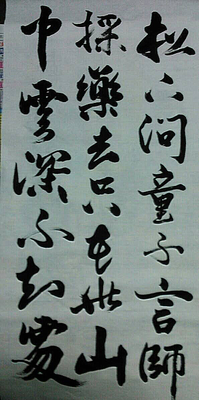 松下问童子言師
採藥去只在此山
中雲深不知處